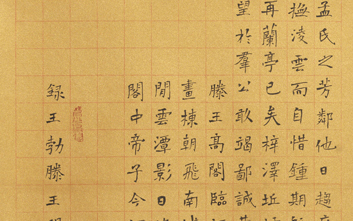 孟氏之芳鄰他日趨
撫淩雲而自惜鍾期
再蘭亭已矣梓澤坵
望於羣公敢竭鄙誠
滕王高閣臨江
畫棟朝飛南
閒雲潭影日
閣中帝子今
録王勃滕王